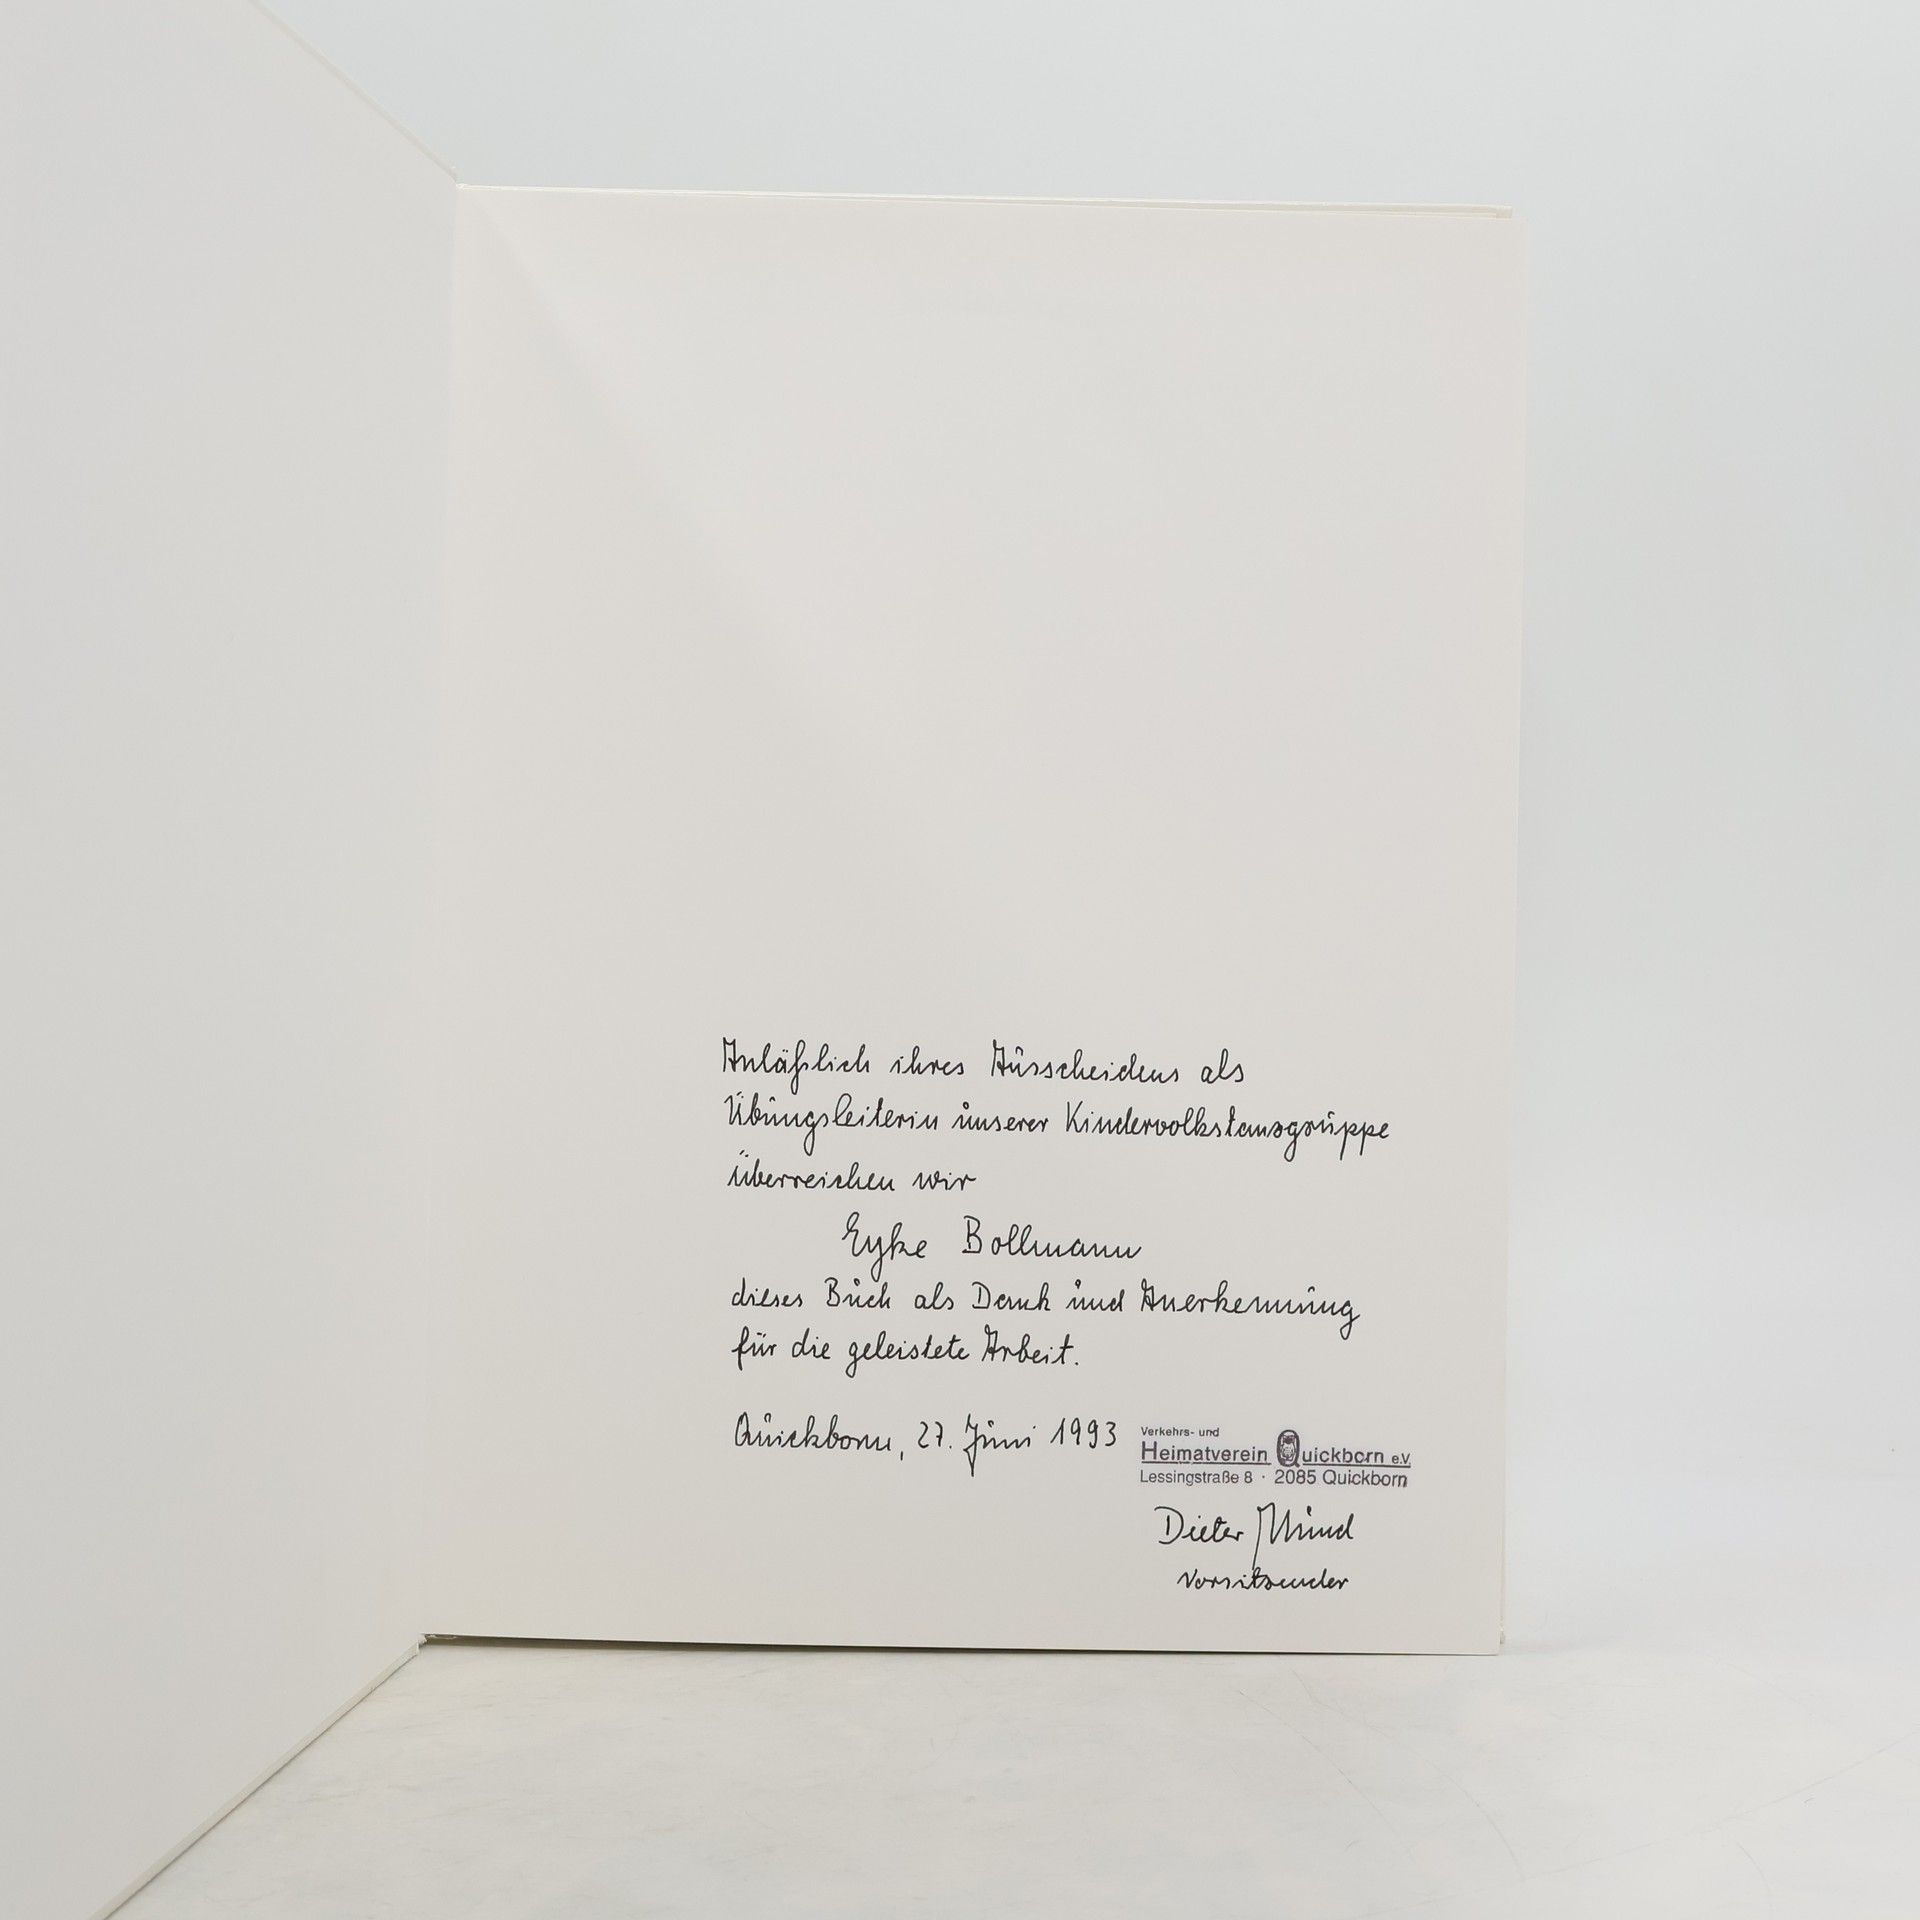 Anläßlich ihres Ausscheidens als
Übungsleiterin unserer Kindervolkstanzgruppe
überreichen wir
Eyke Bollmann
dieses Buch als Dank und Anerkennung
für die geleistete Arbeit.
Quickborn, 27. Juni 1993
Verkehrs- und
Heimatverein Quickborn e.V.
Lessingstraße 8 · 2085 Quickborn
Dieter Mund
Vorsitzender